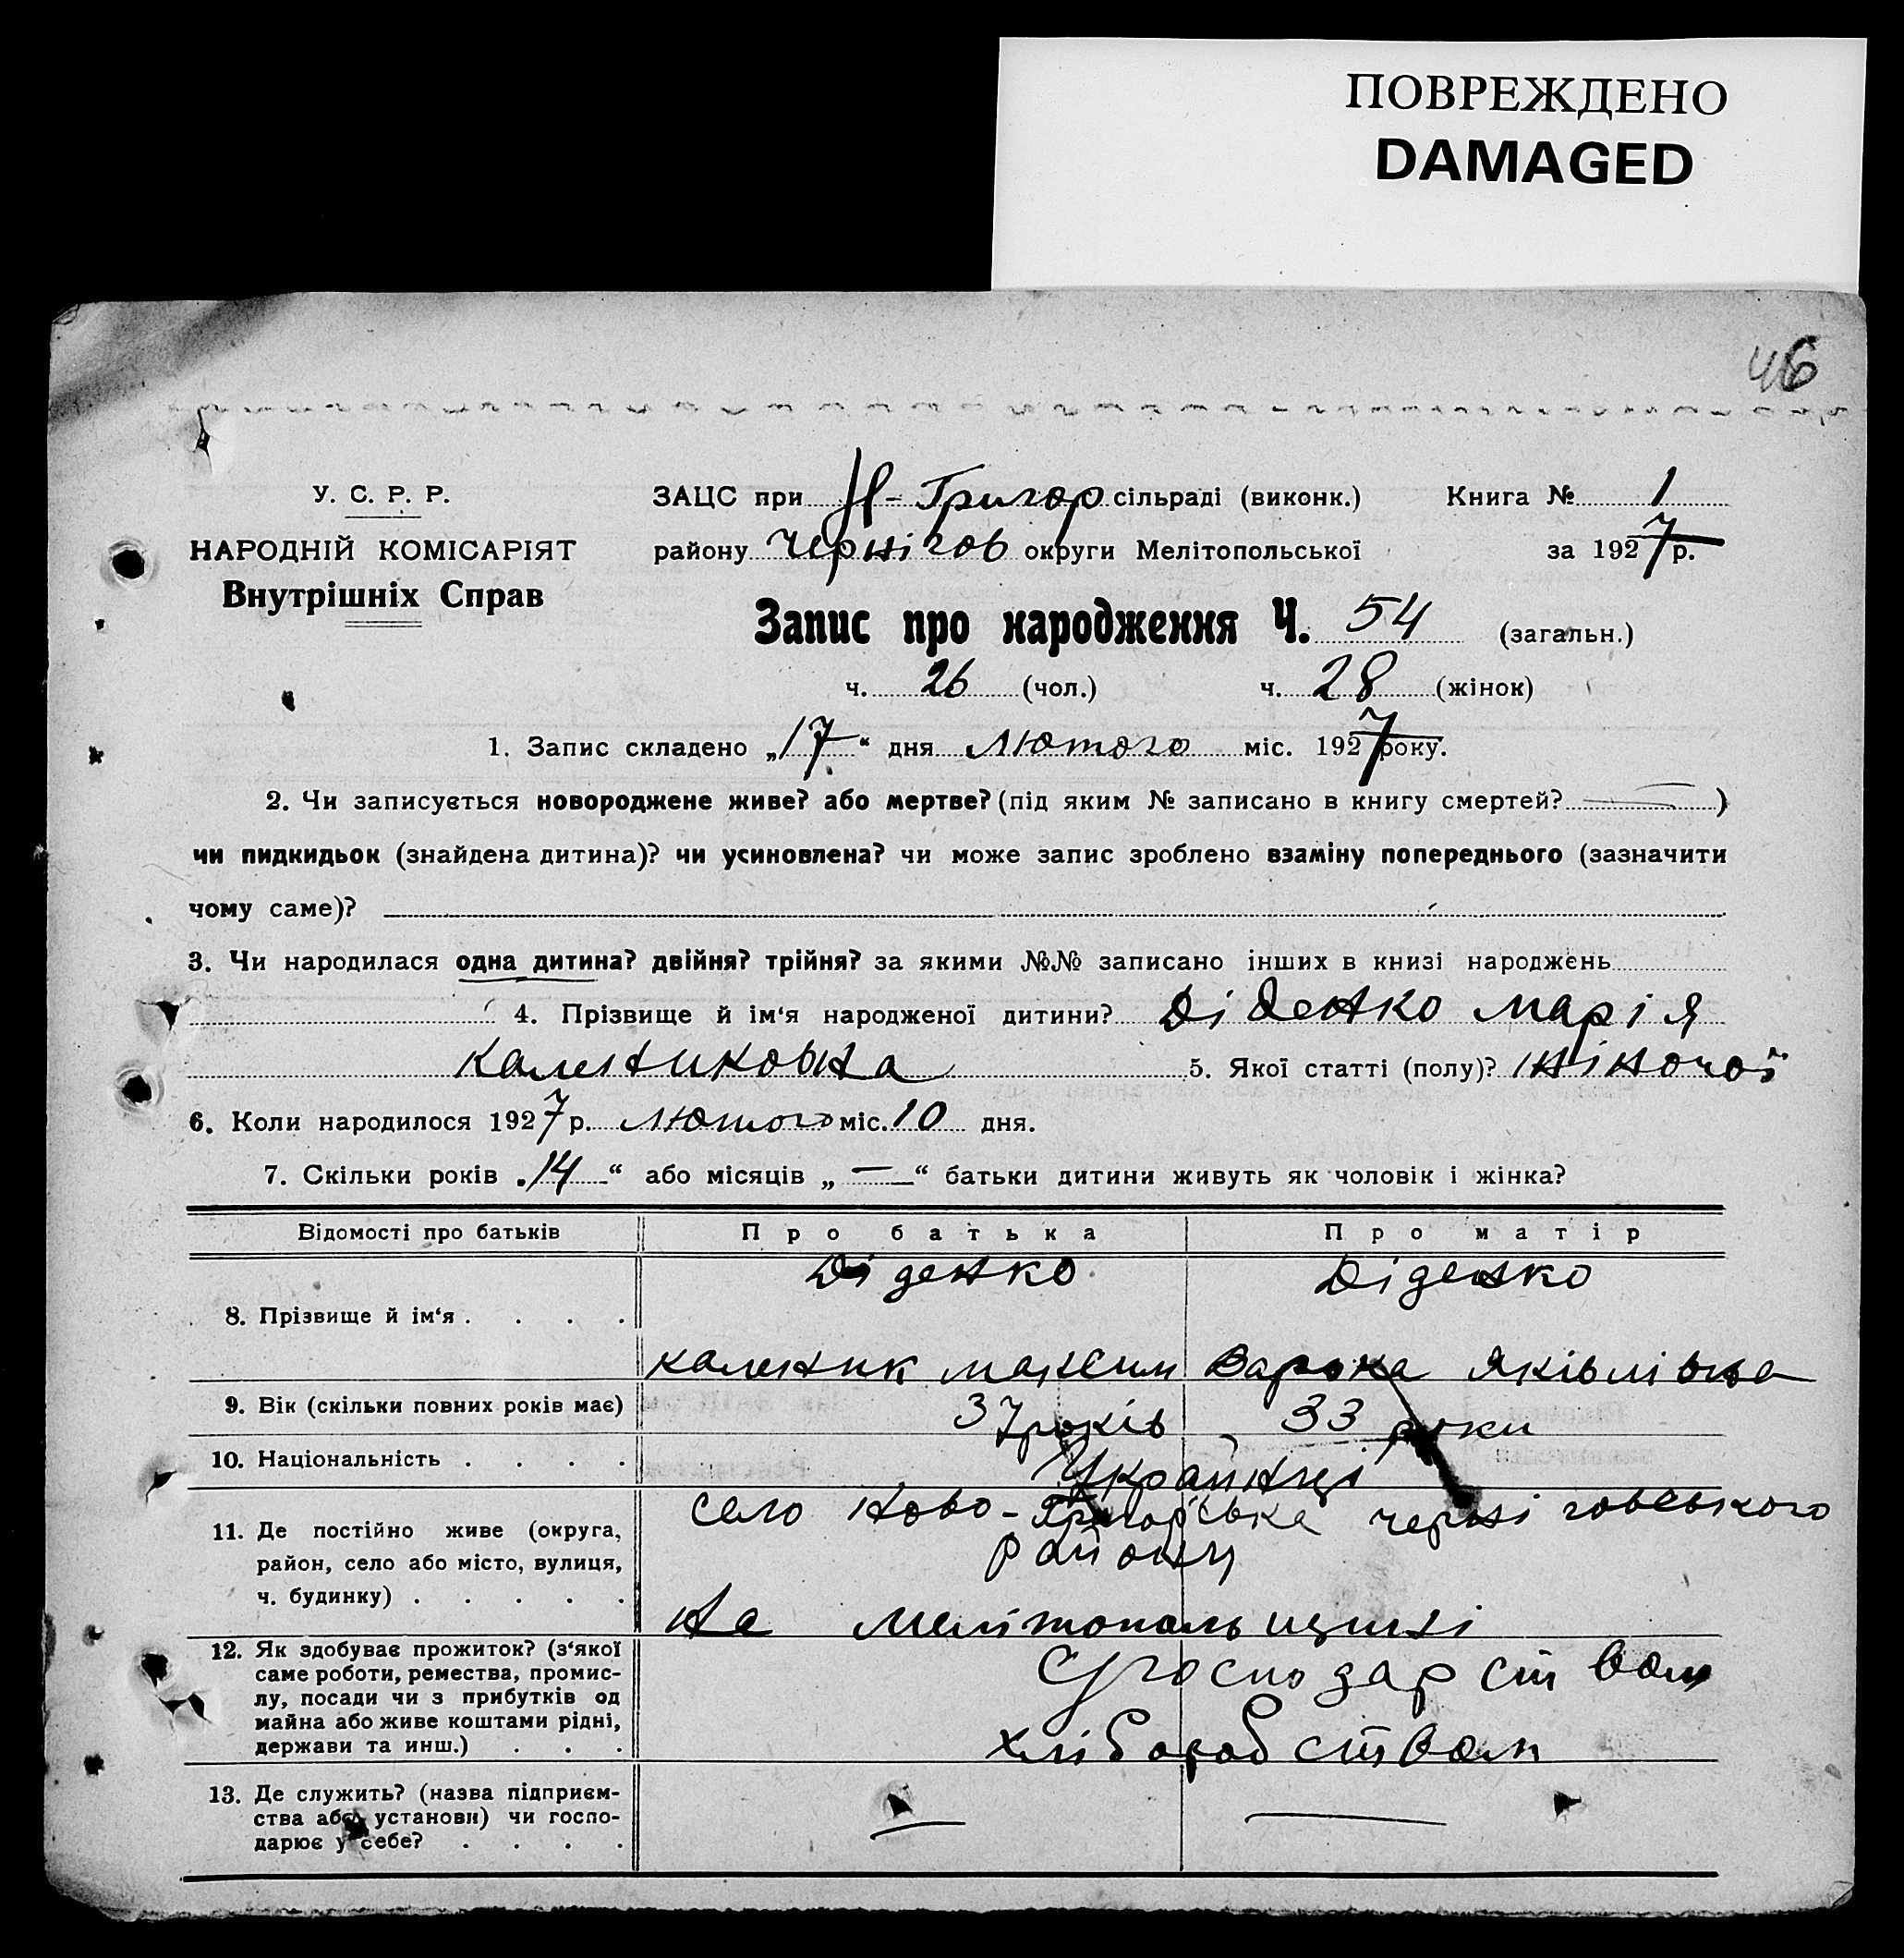 ПОВРЕЖДЕНО
DAMAGED
46
У. С. Р. Р.
НАРОДНІЙ КОМІСАРІЯТ
Внутрішніх Справ
ЗАЦС при Н-Григор сільраді (виконк.) Книга № 1
району Чернігов округи Мелітопольської за 1927 р.
Запис про народження Ч. 54 (загальн.)
ч. 26 (чол.) ч. 28 (жінок)
1. Запис складено „17“ дня Лютого міс. 1927 року.
2. Чи записується новороджене живе? або мертве? (під яким № записано в книгу смертей? — )
чи пидкидьок (знайдена дитина)? чи усиновлена? чи може запис зроблено взаміну попереднього (зазначити
чому саме)?
3. Чи народилася одна дитина? двійня? трійня? за якими №№ записано інших в книзі народжень
4. Прізвище й ім‘я народженої дитини? Діденко Марія
Калениковна 5. Якої статті (полу)? жіночої
6. Коли народилося 1927 р. Лютого міс. 10 дня.
7. Скільки років „14“ або місяців „—“ батьки дитини живуть як чоловік і жінка?
Відомості про батьків Про батька Про матір
8. Прізвище й ім‘я . . . . Діденко Діденко
каленик максим Варька Яківлівна
9. Вік (скільки повних років має) 37 років 33 роки
10. Національність . . . . Українці
11. Де постійно живе (округа, район, село або місто, вулиця, ч. будинку) . . . . . село Ново-Григорʼське черніговського
району
на мелітопольщині
12. Як здобуває прожиток? (з‘якої саме роботи, ремества, промислу, посади чи з прибутків од майна або живе коштами рідні, держави та инш.) . . . господарством
хліборобством
13. Де служить? (назва підприємства або установи) чи господарює у себе? . . . . — —